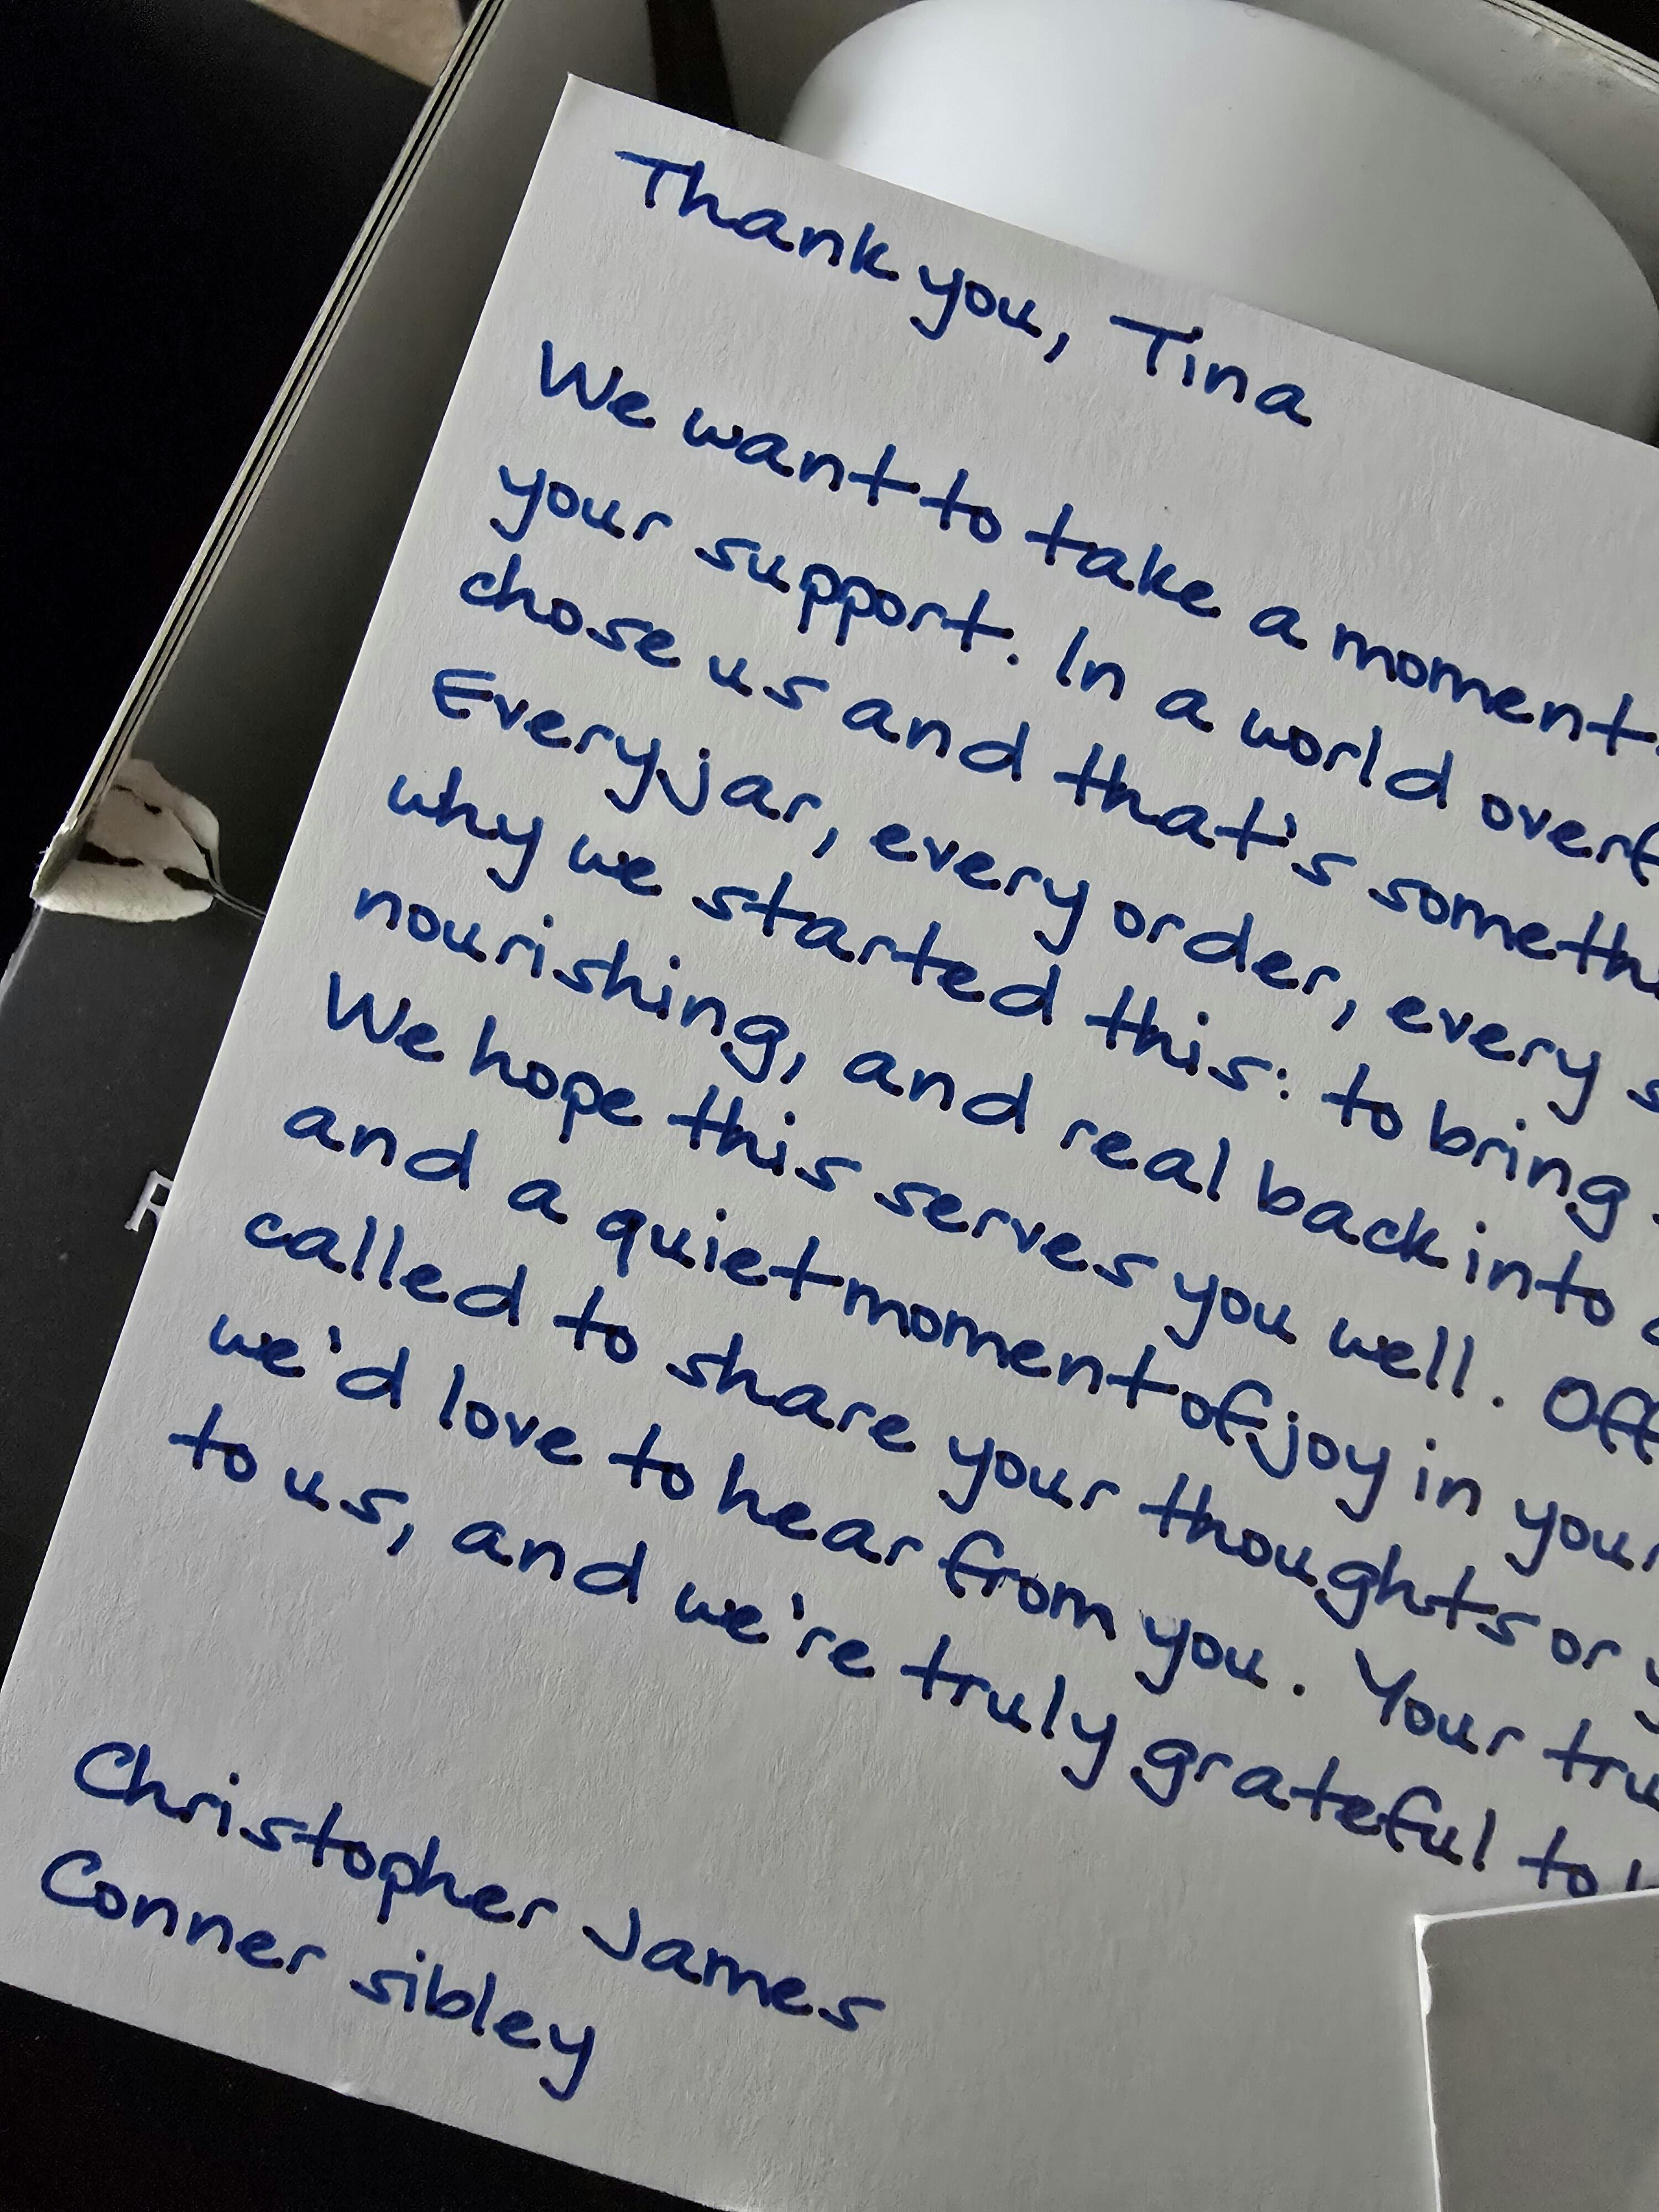 Thank you, Tina
We want to take a moment
your support. In a world
chose us and that's
Every jar, every order, every
why we started this: to bring
nourishing, and real back into
We hope this serves you well.
and a quiet moment of joy in
called to share your thoughts or
we'd love to hear from you. Your
to us, and we're truly grateful to
Christopher James
Conner sibley